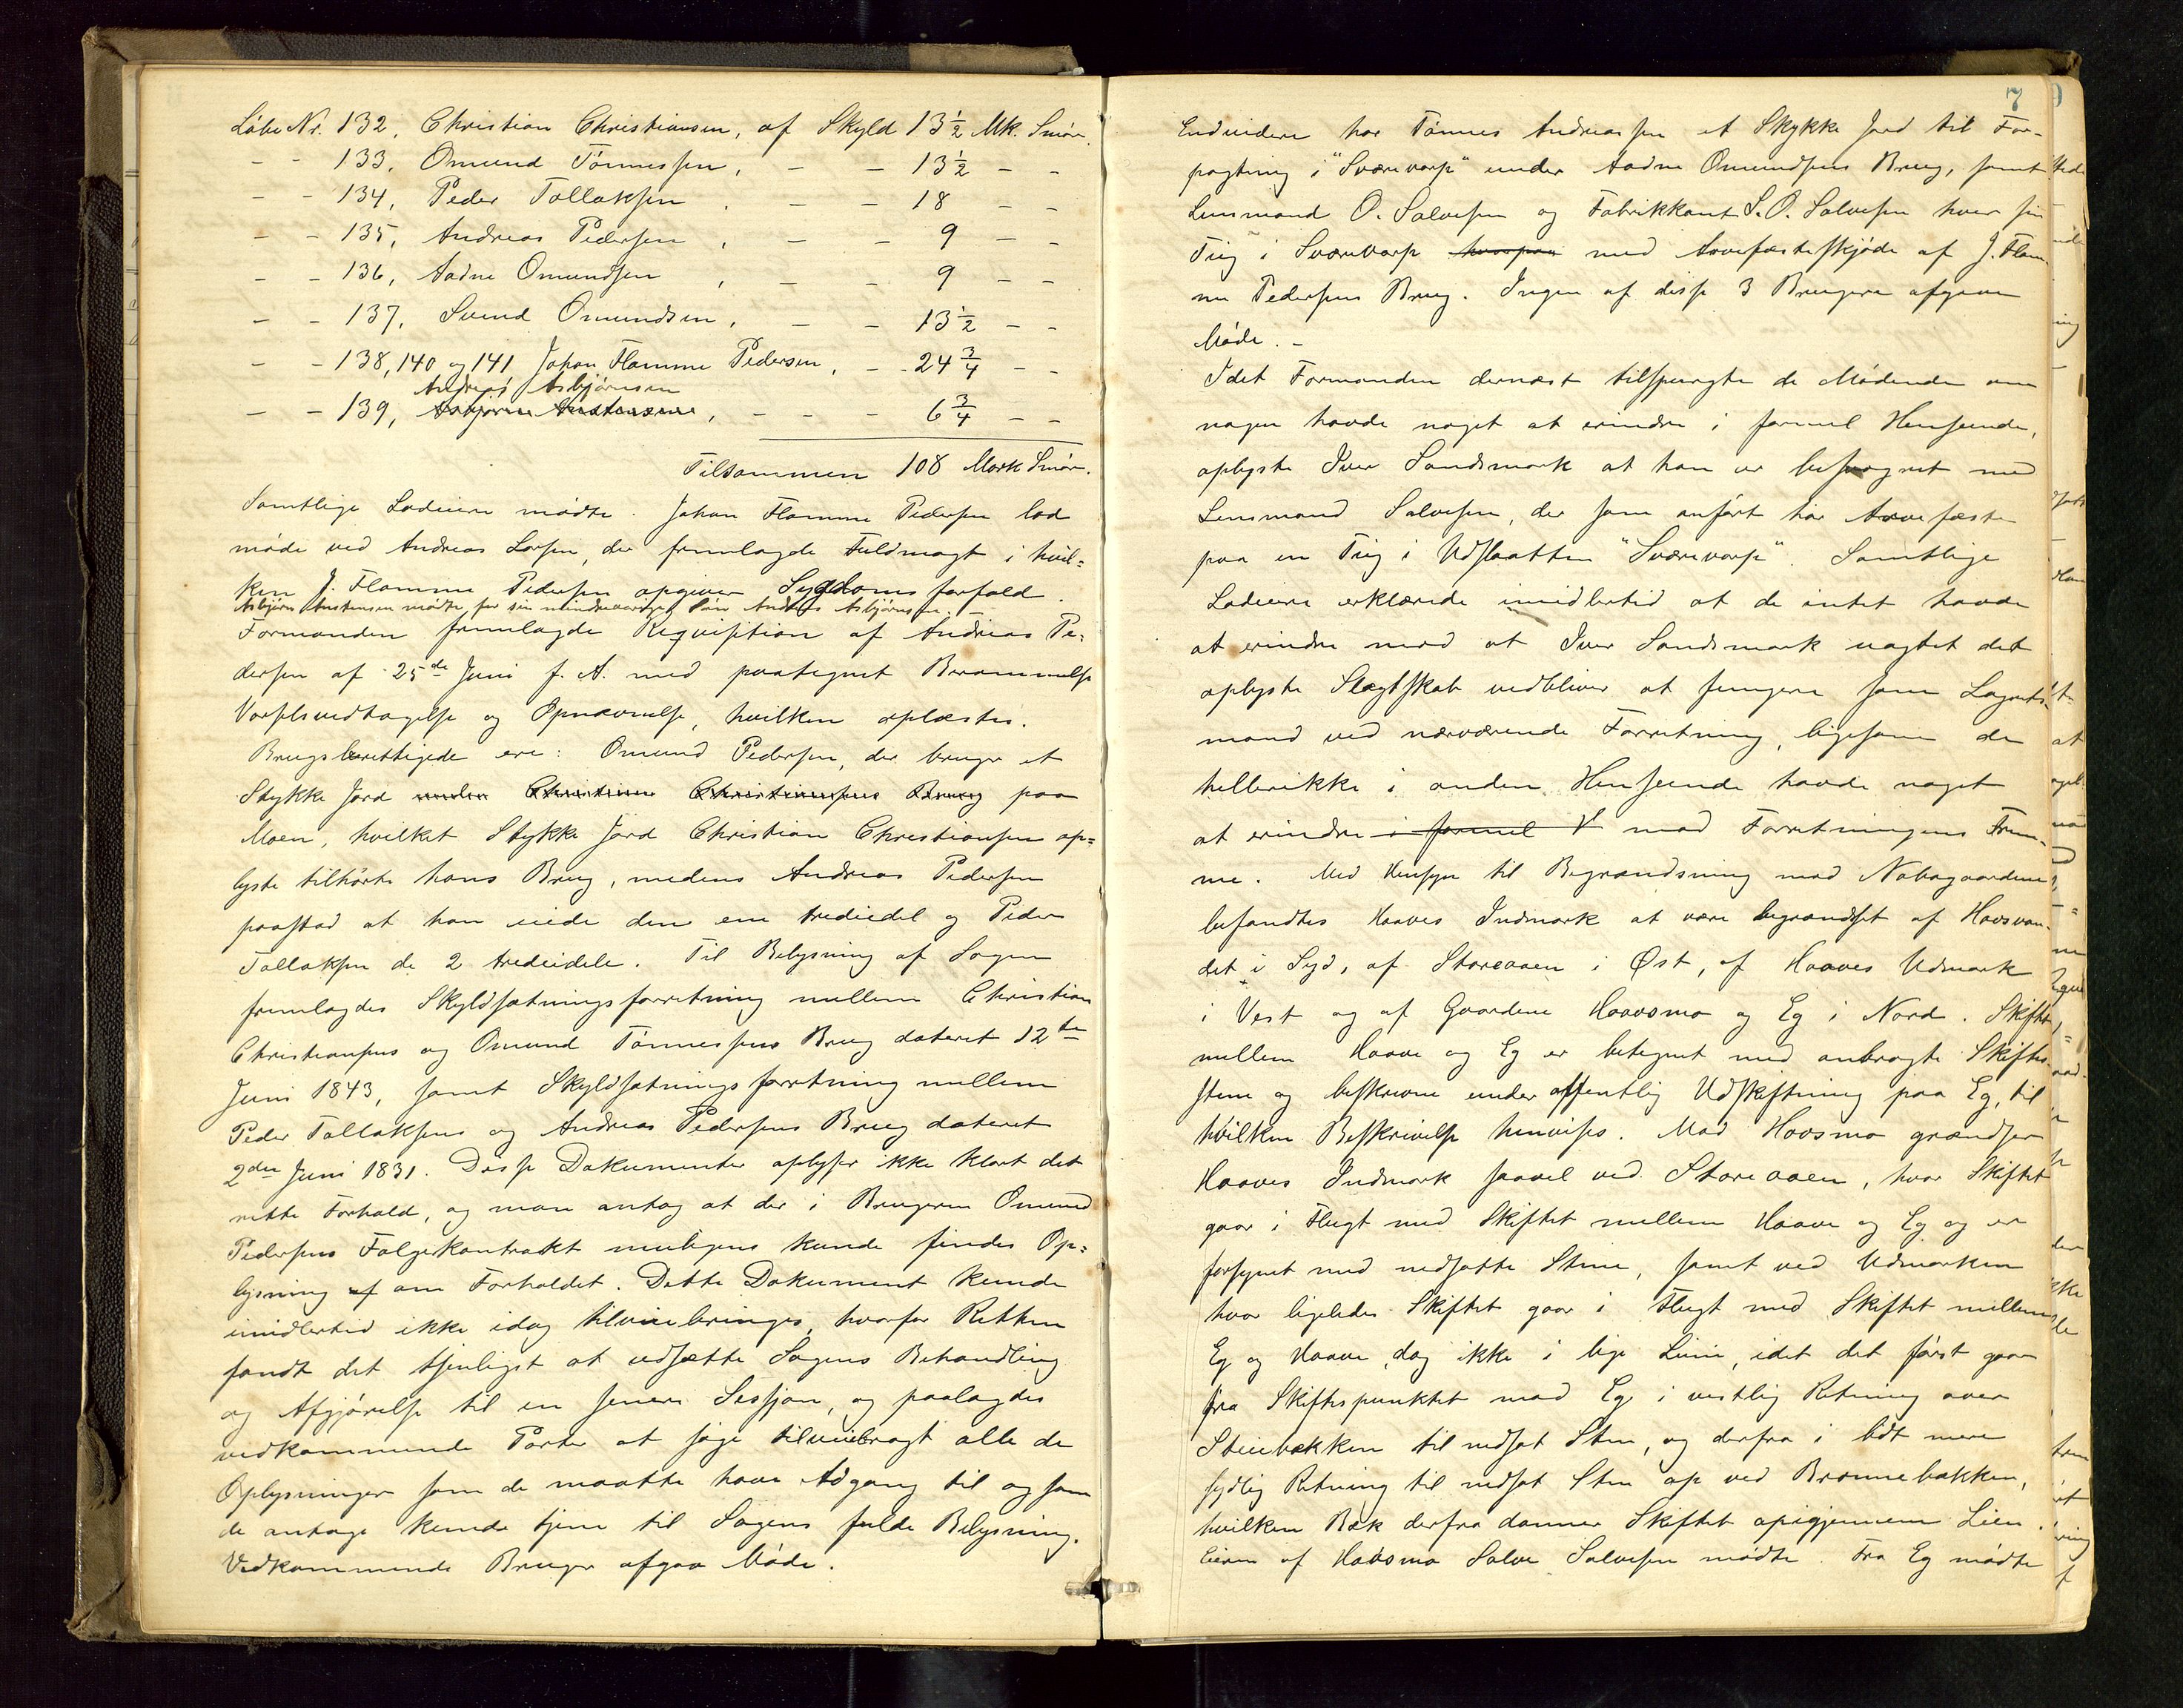 Löbe Nr. 132, Christian Christiansen, af Skyld 13 1/2 Mk. Smør.
- - 133, Omund Tönnessen, - - 13 1/2 - -
- - 134, Peder Tallaksen, - - 18 - -
- - 135, Andreas Pedersen, - - 9 - -
- - 136, Aadne Omundsen, - - 9 - -
- - 137, Svend Omundsen, - - 13 1/2 - -
- - 138, 140 og 141 Johan Flamme Pedersen, - - 24 3/4 - -
Andreas Asbjörnsen
- - 139, Asbjörn Austensen, - - - 6 3/4 - -
Tilsammen 108 Mark Smør.
Samtlige Lodeiere mødte. Johan Flamme Pedersen lod
möde ved Andreas Larsen, der fremlagde Fuldmagt i hvil=
ken J. Flamme Pedersen opgiver Sygdoms forfald.
Asbjörn Austensen mødte for sin mindreaarige Sön Andreas Asbjörnsen. -
Formanden fremlagde Reqvisition af Andreas Pe=
dersen af 25de Juni f. A. med paategnet Berammelse
Varselsvedtagelse og Opnævnelse, hvilken oplæstes.
Brugsberettigede ere: Omund Pedersen, der bruger et
Stykke Jord under Christian Christiansens Brug paa
Moen, hvilket Stykke Jord Christian Christiansen op=
lyste tilhörte hans Brug, medens Andreas Pedersen
paastod at han eiede den ene trediedel og Peder
Tallaksen de 2 trediedele. Til Belysning af Sagen
fremlagdes Skyldsætningsforretning mellem Christian
Christiansens og Omund Tönnessens Brug dateret 12te
Juni 1843, samt Skyldsætningsforretning mellem
Peder Tallaksens og Andreas Pedersens Brug dateret
2den Juni 1831. Disse Dokumenter oplyser ikke klart det
rette Forhold, og man antog at der i Brugeren Omund
Pedersens Følgekontrakt muligens kunde findes Op=
lysning af om Forholdet. Dette Dokument kunde
imidlertid ikke idag tilveiebringes, hvorfor Retten
fandt det tjenligst at udsætte Sagens Behandling
og Afgjörelse til en senere Session, og paalagdes
vedkommende Parter at söge tilveiebragt alle de
Oplysninger som de maatte have Adgang til og som
de antage kunde tjene til Sagens fulde Belysning.
Vedkommende Bruger afgav Möde.
7
Endvidere har Tönnes Andreassen et Stykke Jord til For-
pagtning i "Sværevarp" under Aadne Omundsens Brug, samt
Lensmand O. Salvesen og Fabrikkant S. O. Salvesen hver sin
Teig i Sværevarp hvorpaa med Arvefæsteskjöde af J. Flam-
me Pedersens Brug. Ingen af disse 3 Brugere afgave
Möde. -
Idet Formanden dernæst tilspurgte de Mödende om
nogen havde noget at erindre i formel Henseende,
oplyste Iver Sandsmark at han er besvogret med
Lensmand Salvesen, der som anført har Arvefæste
paa en Teig i Udslaatten "Sværevarp". Samtlige
Lodeiere erklærede imidlertid at de intet havde
at erindre mod at Iver Sandsmark uagtet det
oplyste Slægtskab vedbliver at fungere som Lagrets-
mand ved nærværende Forretning, ligesom de
hellerikke i anden Henseende havde noget
at erindre i formel V mod Forretningens Frem-
me. Med Hensyn til Begrændsning mod Nabogaardene
befandtes Haaves Indmark at være begrændset af Haavsvan-
det i Syd, af Storeaaen i Øst, af Haaves Udmark
i Vest og af Gaardene Haavsmo og Eg i Nord. Skiftet
mellem Haave og Eg er betegnet med anbragte Skiftes-
stene og beskrevne under offentlig Udskiftning paa Eg, til
hvilken Beskrivelse henvises. Mod Haavsmo grændser
Haaves Indmark saavel ved Storeaaen, hvor Skiftet
gaar i Flugt med Skiftet mellem Haave og Eg og er
forsynet med nedsatte Stene, samt ved Udmarken
hvor ligeledes Skiftet gaar i Flugt med Skiftet mellem
Eg og Haave, dog ikke i lige Linie, idet det först gaar
fra Skiftespunktet mod Eg i vestlig Retning over
Steinbækken til nedsat Sten, og derfra i lidt mere
sydlig Retning til nedsat Sten op ved Brönnebækken,
hvilken Bæk derfra danner Skiftet opigjennem Lien.
Eieren af Haavsmo Salve Salvesen mødte. Fra Eg mødte